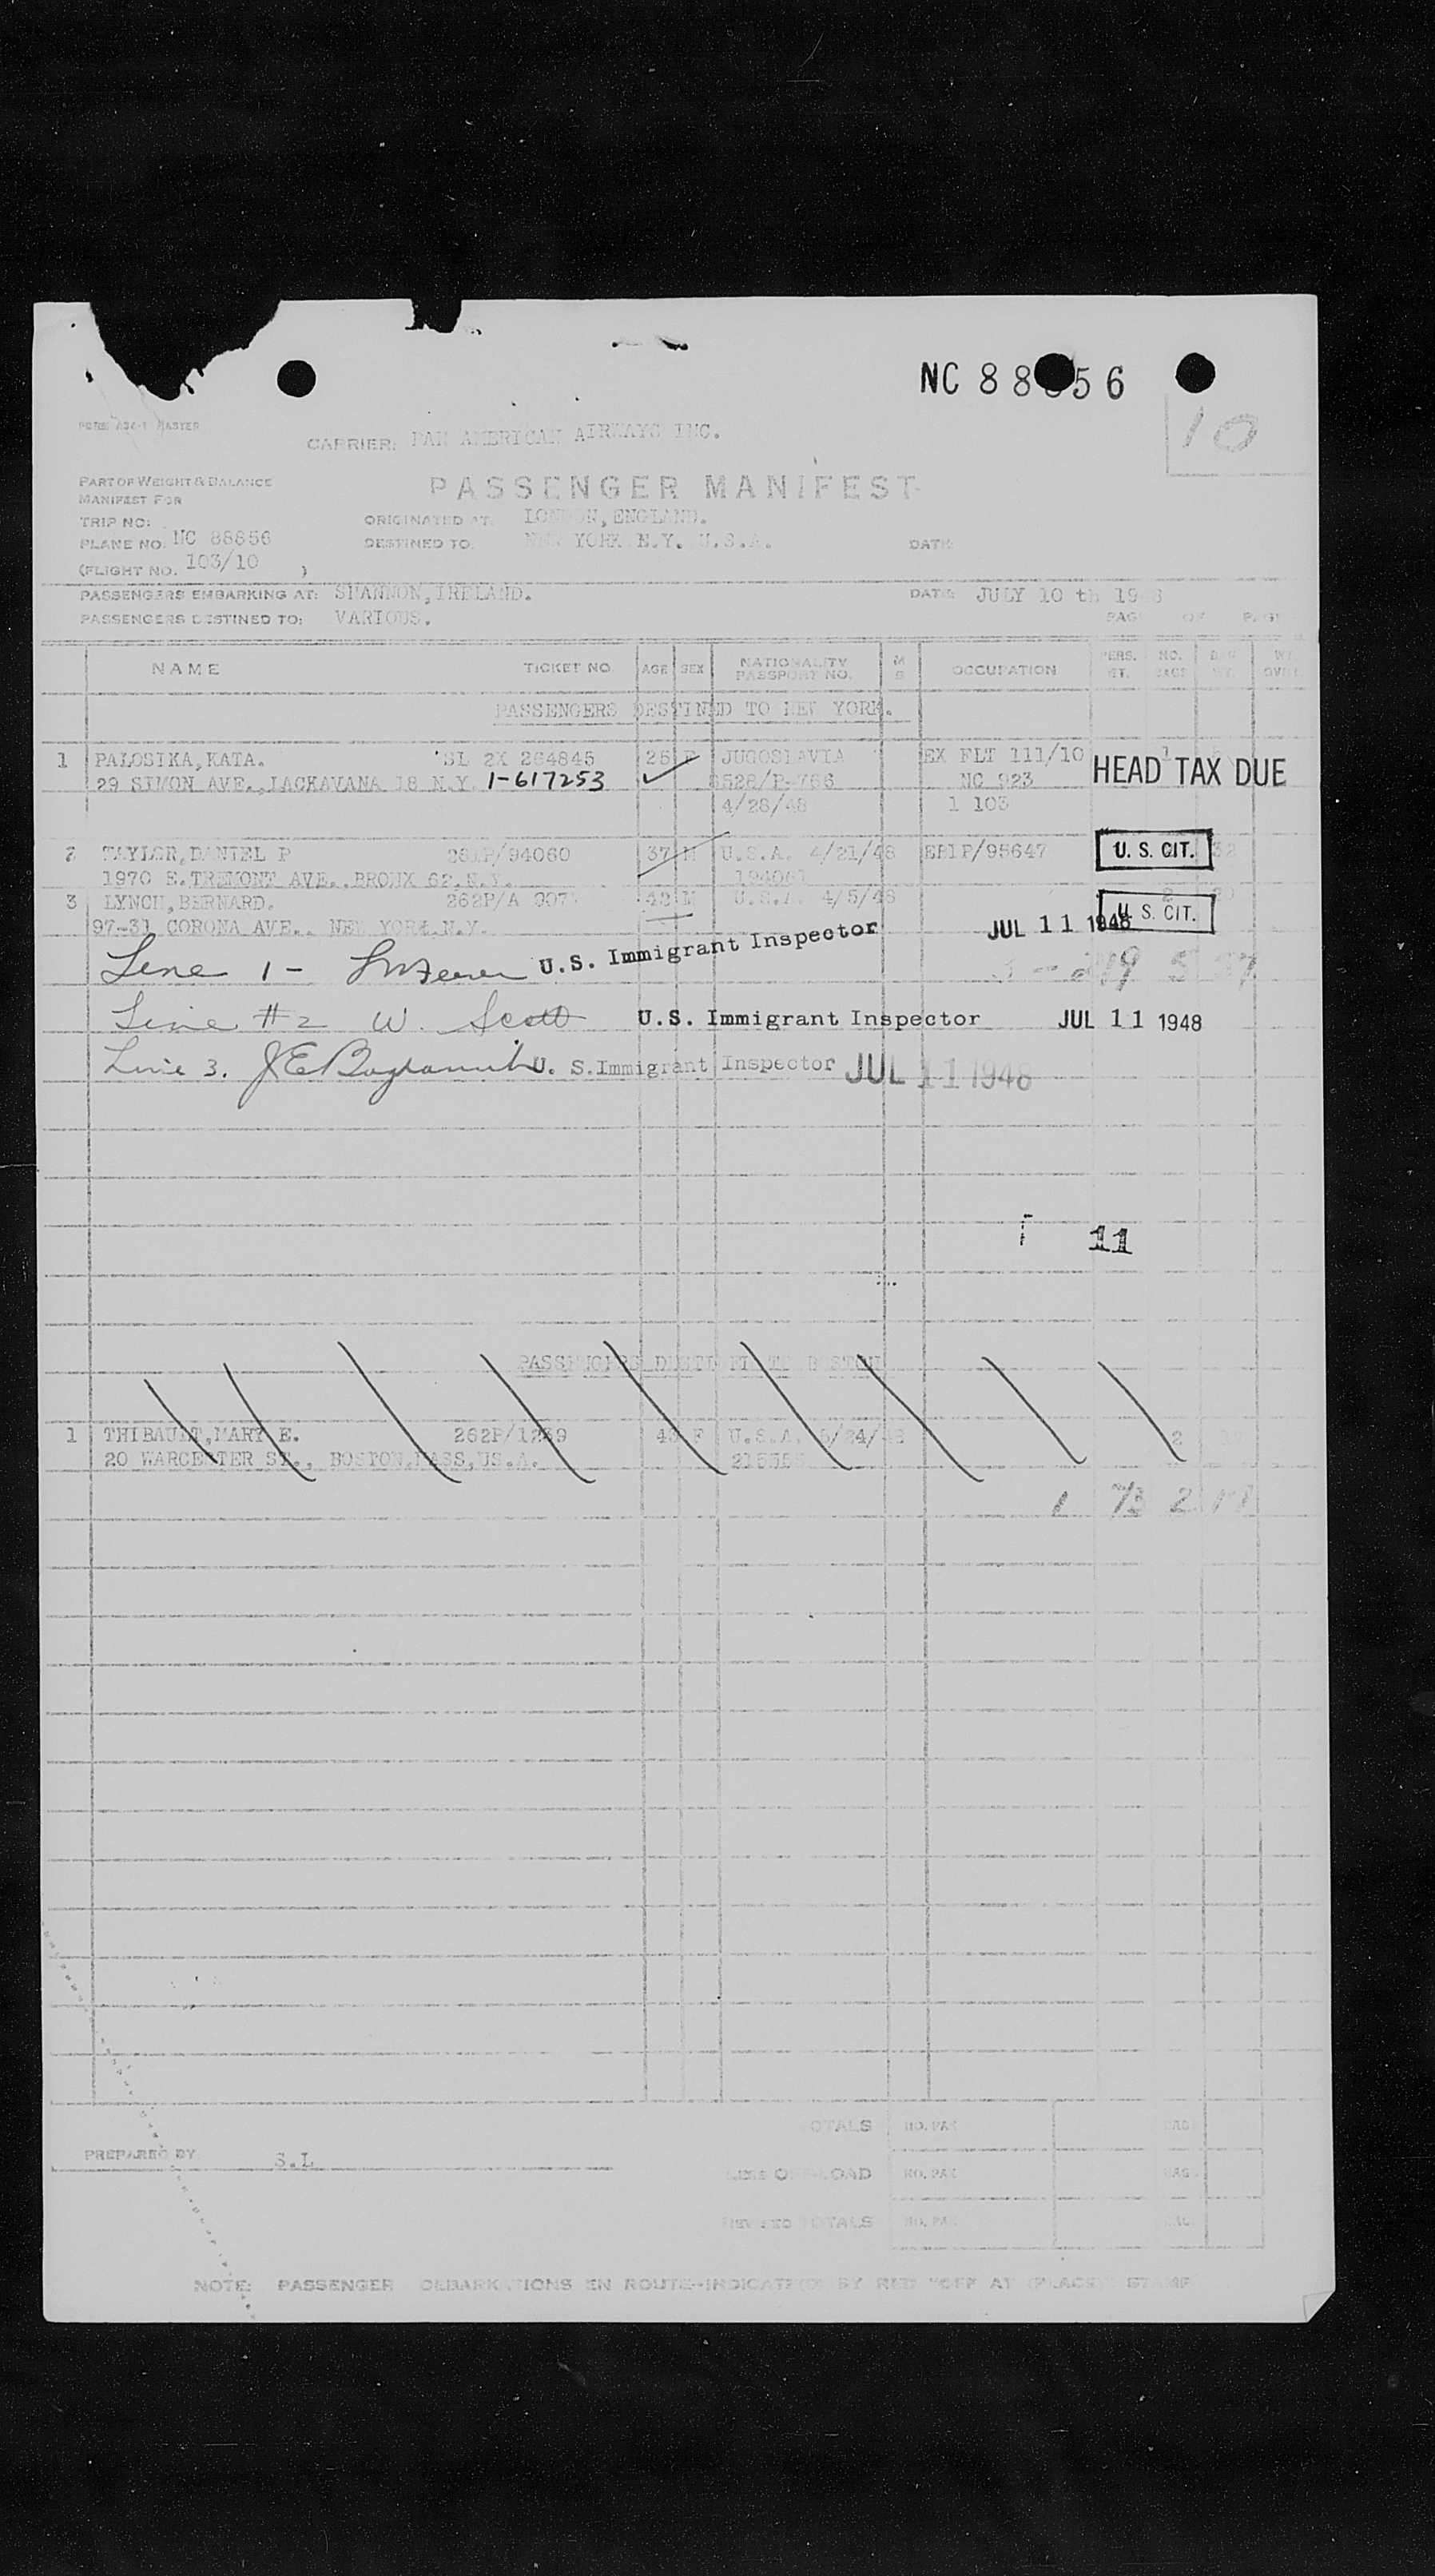 NC 88 56
10
CARRIER: PAN AMERICAN AIRWAYS INC.
PART OF WEIGHT & BALANCE
MANIFEST FOR
PASSENGER MANIFEST
TRIP NO:
ORIGINATED AT. LONDON, ENGLAND.
PLANE NO. NC 88856
DESTINED TO. NEW YORK N.Y. U.S.A.
DATE
(FLIGHT NO. 103/10 )
PASSENGERS EMBARKING AT: SHANNON, IRELAND.
DATE JULY 10 th 1948
PASSENGERS DESTINED TO: VARIOUS.
PAGE OF PAGE
NAME TICKET NO. AGE SEX NATIONALITY PASSPORT NO. M S OCCUPATION PERS. WT. NO. BAGS BAG WT.
PASSENGERS DESTINED TO NEW YORK.
1 PALOSIKA, KATA. SL 2X 264845 25 F JUGOSLAVIA EX FLT 111/10
29 SIMON AVE., LACKAVANA 18 N.Y. 1-617253 NC 923 HEAD TAX DUE
4/28/48 1 103
2 TAYLOR, DANIEL P /94060 37 M U.S.A. 4/21/48 EBIP/95647 U. S. CIT. 32
1970 E. TREMONT AVE., BRONX 62, N.Y.
3 LYNCH, BERNARD. 262P/A 43 M U.S.A. 4/5/48 2
97-31 CORONA AVE., NEW YORK, N.Y. U. S. CIT.
Line 1- U.S. Immigrant Inspector JUL 11 1948
Line #2 W. Scott U.S. Immigrant Inspector JUL 11 1948
Line 3. U. S. Immigrant Inspector JUL 11 1948
11
PASSENGERS DESTINED TO BOSTON
1 THIBAULT, MARY E. 262P/1239 F U.S.A. 5/24/48 2
20 WARCESTER ST., BOSTON, MASS, US.A.
1 73 2
TOTALS NO. PAX BAG
PREPARED BY S.L
LESS OFF-LOAD NO. PAX BAG
REVISED TOTALS NO. PAX BAG
NOTE: PASSENGER DEBARKATIONS EN ROUTE-INDICATED BY RED "OFF AT (PLACE)" STAMP